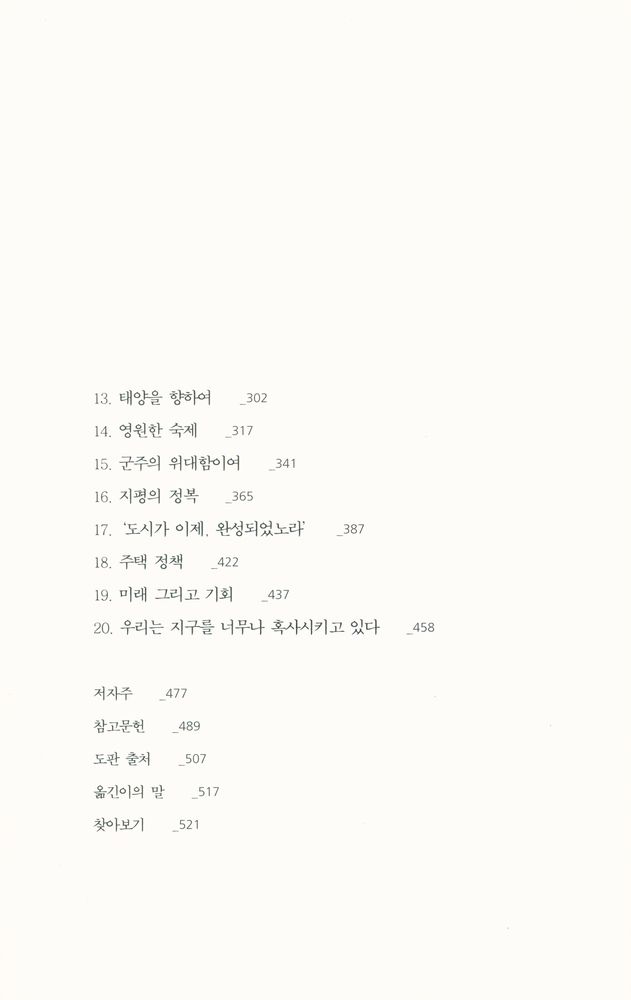 13. 태양을 향하여 _302
14. 영원한 숙제 _317
15. 군주의 위대함이여 _341
16. 지평의 정복 _365
17. '도시가 이제, 완성되었노라' _387
18. 주택 정책 _422
19. 미래 그리고 기회 _437
20. 우리는 지구를 너무나 혹사시키고 있다 _458
저자주 _477
참고문헌 _489
도판 출처 _507
옮긴이의 말 _517
찾아보기 _521